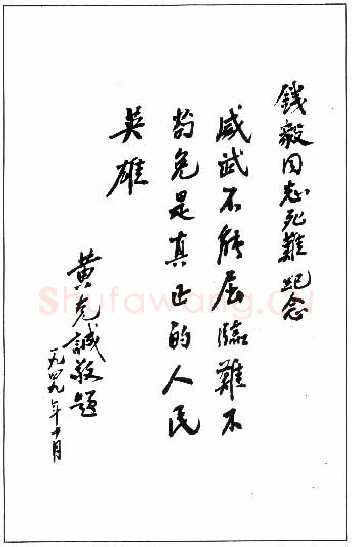 錢毅同志死難紀念
威武不能屈臨難不
茍免是真正的人民
英雄
黄克誠敬題
一九四九年十月
Shufawang.CN